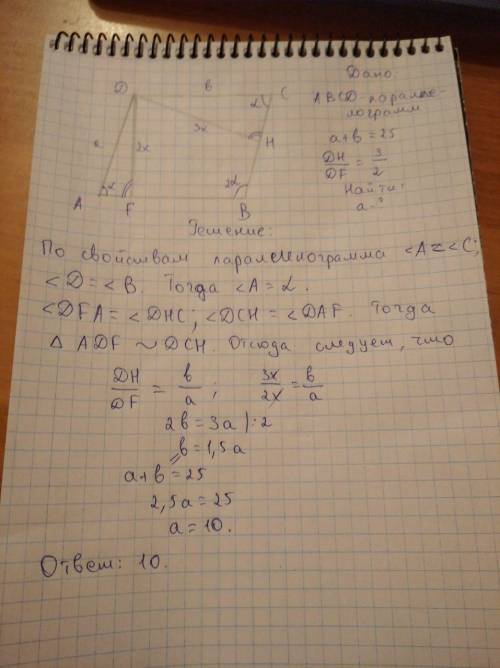 Дано:
ABCD - паралле-
лограмм
a+b=25
DH/DF = 3/2
Найти:
a-?
D b C
α
3x
H
a 2x
α 2α
A F B
Решение:
По свойствам параллелограмма <A=<C;
<D=<B. Тогда <A=α.
<DFA=<DHC; <DCH=<DAF. Тогда
Δ ADF ~ DCH. Отсюда следует, что
DH/DF = b/a; 3x/2x = b/a
2b=3a |:2
b=1,5a
a+b=25
2,5a=25
a=10.
Ответ: 10.